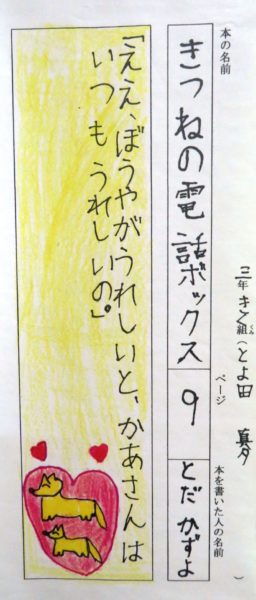 三年 き組(とよ田 夢)
本の名前
きつねの電話ボックス
ページ
9
本を書いた人の名前
とだかずよ
「ええ、ぼうやがうれしいと、かあさんは
いつもうれしいの。」